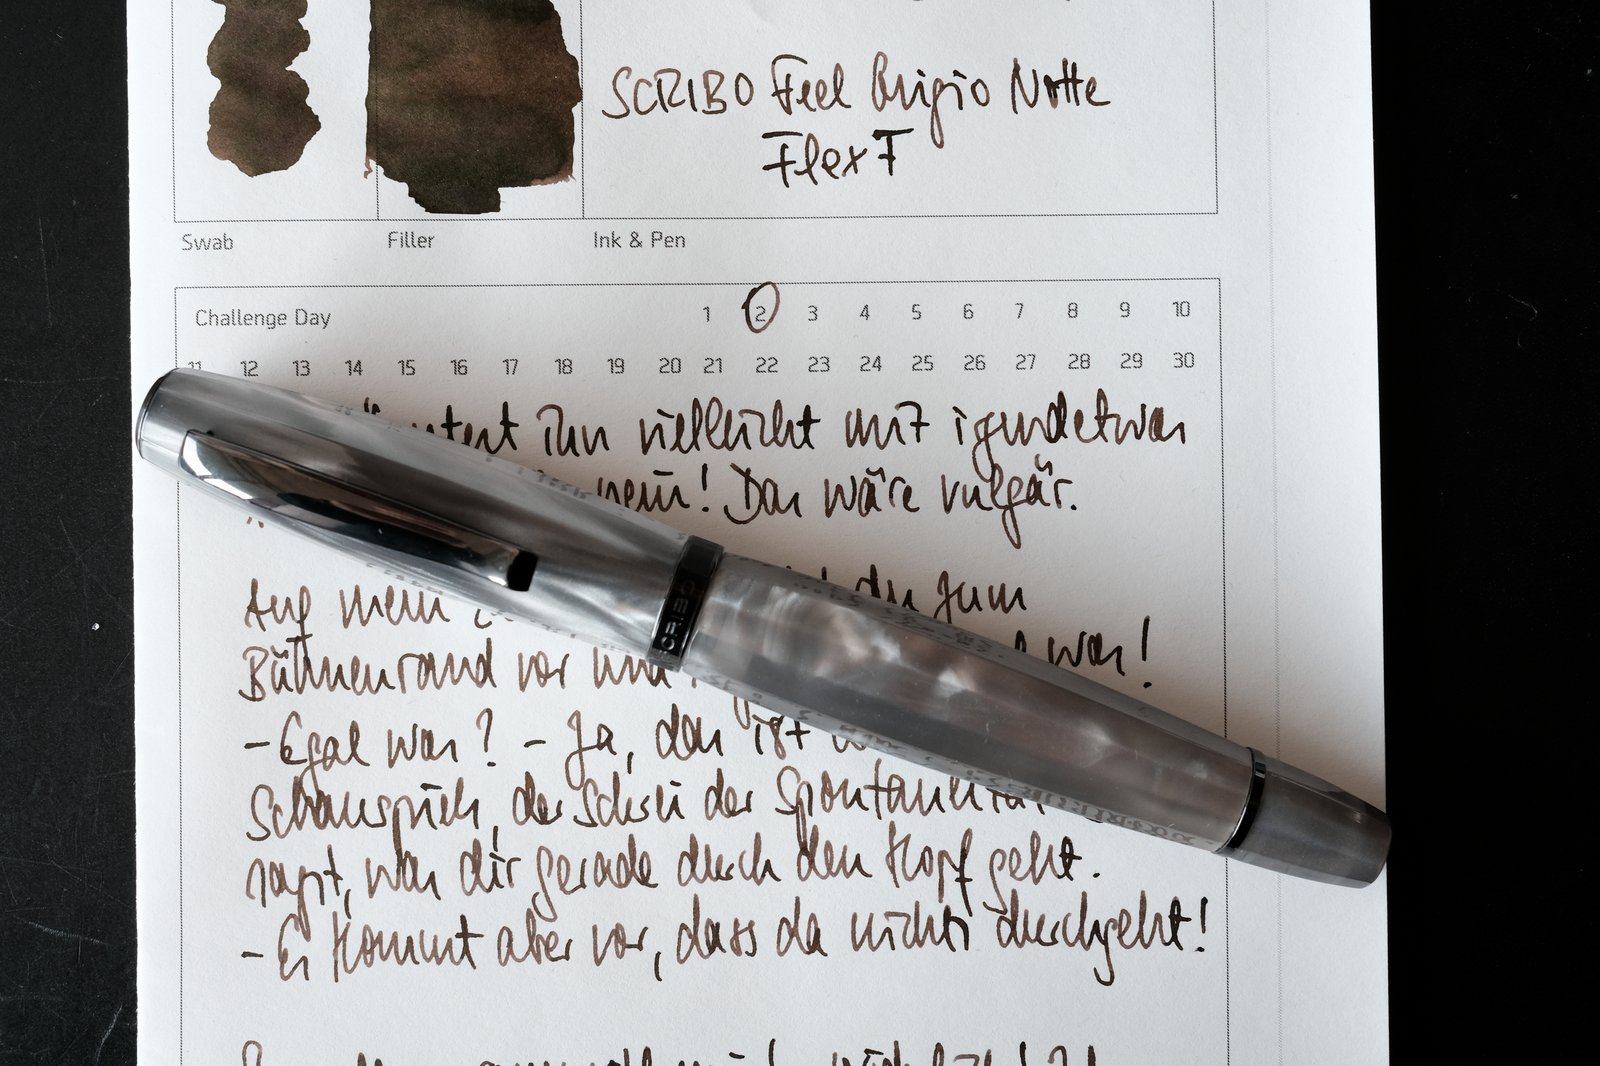 SCRIBO Feel Grigio Notte
Flex F
Swab Filler Ink & Pen
Challenge Day 1 2 3 4 5 6 7 8 9 10
11 12 13 14 15 16 17 18 19 20 21 22 23 24 25 26 27 28 29 30
ihn vielleicht mit irgendetwas
nein! Das wäre vulgär.
Auf mein du zum
Bühnenrand vor und war!
SCRIBO
- Egal was? - Ja, das ist
Schauspiel, der Schrei der Spontaneität
sagst, was dir gerade durch den Kopf geht.
- Es kommt aber vor, dass da nichts durchgeht!